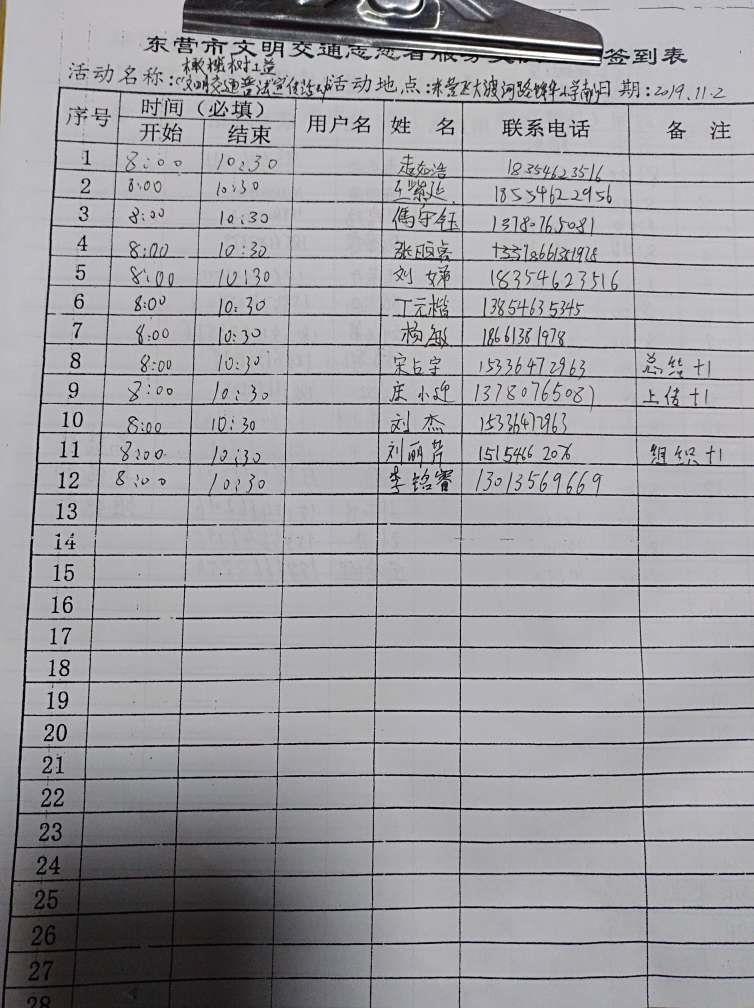 东营市文明交通志愿者服务 签到表
橄榄树公益
活动名称:"文明交通普法宣传活动" 活动地点:东营区大渡河路锦华小学南 日期:2019.11.2
序号 时间(必填) 用户名 姓 名 联系电话 备 注
开始 结束
1 8:00 10:30 18354623516
2 8:00 10:30 18554622956
3 8:00 10:30 傅守钰 13780765081
4 8:00 10:30
5 8:00 10:30 刘娣 18354623516
6 8:00 10:30 丁元楷 13854635345
7 8:00 10:30 杨敏 18661381978
8 8:00 10:30 宋占宇 15336472963 总结+1
9 8:00 10:30 庆小迎 13780765081 上传+1
10 8:00 10:30 刘杰 15336472963
11 8:00 10:30 刘丽芹 15154662076 组织+1
12 8:00 10:30 李铭睿 13013569669
13
14
15
16
17
18
19
20
21
22
23
24
25
26
27
28